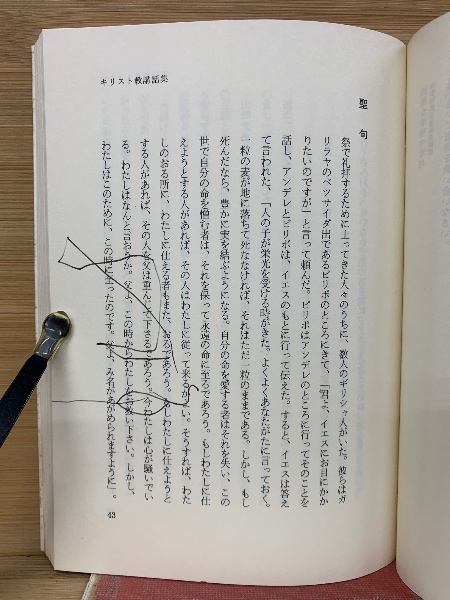 キリスト教講話集
聖句
祭で礼拝するために上ってきた人々のうちに、数人のギリシヤ人がいた。彼らはガ
リラヤのベツサイダ出であるピリポのところにきて、「君よ、イエスにお目にかか
りたいのですが」と言って頼んだ。ピリポはアンデレのところに行ってそのことを
話し、アンデレとピリポは、イエスのもとに行って伝えた。すると、イエスは答え
て言われた、「人の子が栄光を受ける時がきた。よくよくあなたがたに言っておく。
一粒の麦が地に落ちて死ななければ、それはただ一粒のままである。しかし、もし
死んだなら、豊かに実を結ぶようになる。自分の命を愛する者はそれを失い、この
世で自分の命を憎む者は、それを保って永遠の命に至るであろう。もしわたしに仕
えようとする人があれば、その人はわたしに従って来るがよい。そうすれば、わた
しのおる所に、わたしに仕える者もまた、おるであろう。もしわたしに仕えようと
する人があれば、その人を父は重んじて下さるであろう。今わたしは心が騒いでい
る。わたしはなんと言おうか。父よ、この時からわたしをお救い下さい。しかし、
わたしはこのために、この時に至ったのです。父よ、み名があがめられますように」。
43